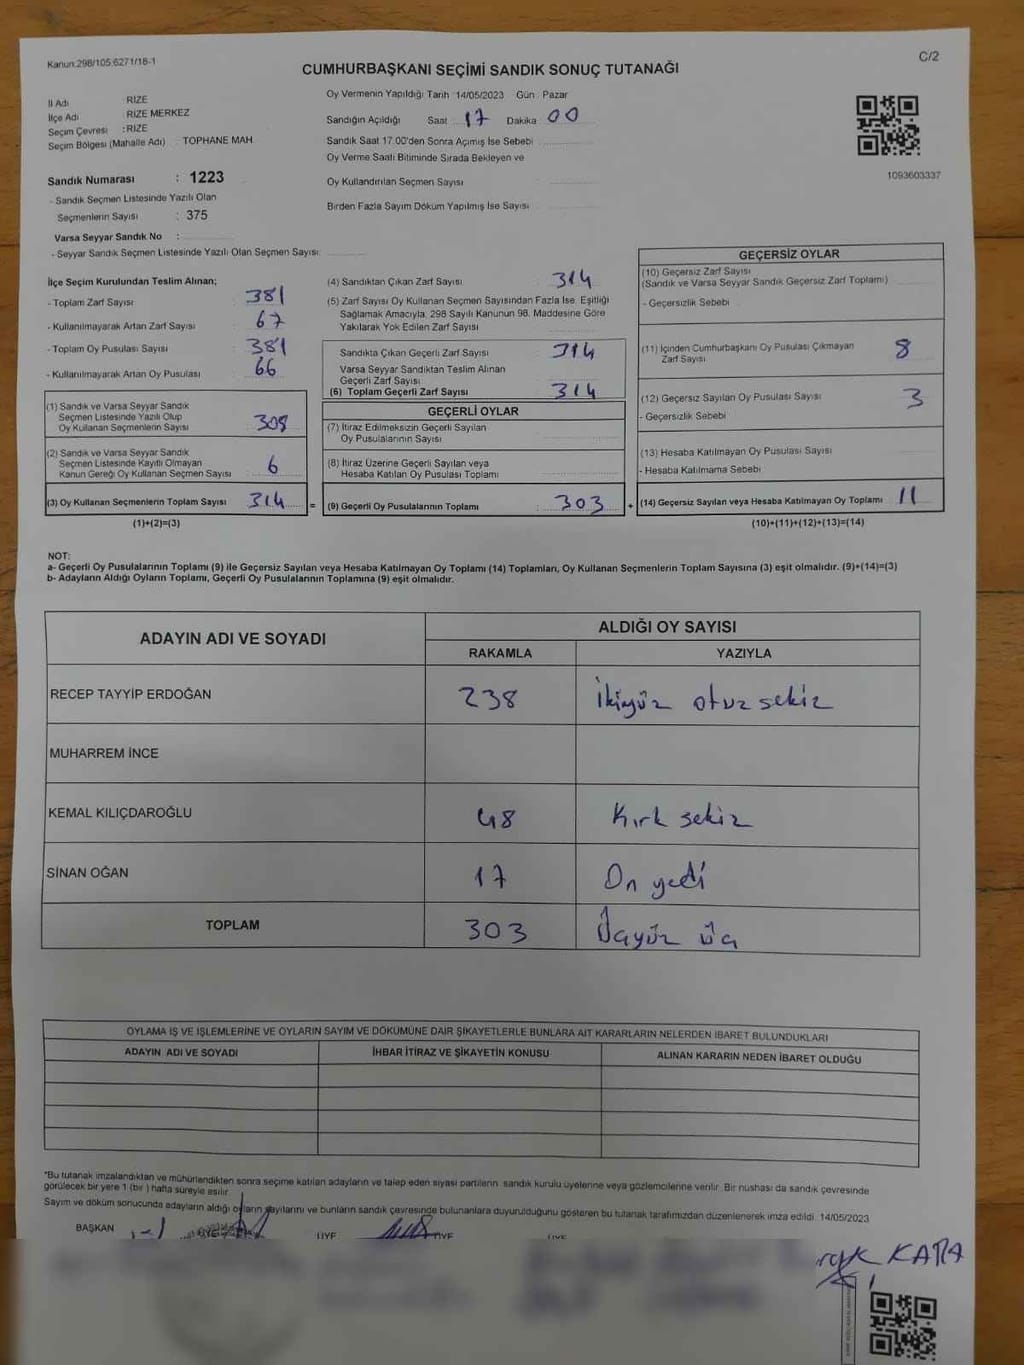 Kanun:298/105;6271/18-1
C/2
CUMHURBAŞKANI SEÇİMİ SANDIK SONUÇ TUTANAĞI
İl Adı : RİZE
İlçe Adı RİZE MERKEZ
Seçim Çevresi : RİZE
Seçim Bölgesi (Mahalle Adı) : TOPHANE MAH.
Sandık Numarası : 1223
- Sandık Seçmen Listesinde Yazılı Olan
Seçmenlerin Sayısı : 375
Varsa Seyyar Sandık No :
- Seyyar Sandık Seçmen Listesinde Yazılı Olan Seçmen Sayısı:
Oy Vermenin Yapıldığı Tarih 14/05/2023 Gün : Pazar
Sandığın Açıldığı Saat : 17 Dakika 00
Sandık Saat 17:00'den Sonra Açımış İse Sebebi
Oy Verme Saati Bitiminde Sırada Bekleyen ve
Oy Kullandırılan Seçmen Sayısı
Birden Fazla Sayım Döküm Yapılmış İse Sayısı
1093603337
İlçe Seçim Kurulundan Teslim Alınan;
- Toplam Zarf Sayısı : 381
- Kullanılmayarak Artan Zarf Sayısı : 67
- Toplam Oy Pusulası Sayısı : 381
- Kullanılmayarak Artan Oy Pusulası : 66
(1) Sandık ve Varsa Seyyar Sandık
Seçmen Listesinde Yazılı Olup
Oy Kullanan Seçmenlerin Sayısı : 308
(2) Sandık ve Varsa Seyyar Sandık
Seçmen Listesinde Kayıtlı Olmayan
Kanun Gereği Oy Kullanan Seçmen Sayısı : 6
(3) Oy Kullanan Seçmenlerin Toplam Sayısı : 314 =
(1)+(2)=(3)
(4) Sandıktan Çıkan Zarf Sayısı : 314
(5) Zarf Sayısı Oy Kullanan Seçmen Sayısından Fazla İse, Eşitliği
Sağlamak Amacıyla, 298 Sayılı Kanunun 98. Maddesine Göre
Yakılarak Yok Edilen Zarf Sayısı
Sandıkta Çıkan Geçerli Zarf Sayısı : 314
Varsa Seyyar Sandıktan Teslim Alınan
Geçerli Zarf Sayısı
(6) Toplam Geçerli Zarf Sayısı : 314
GEÇERLİ OYLAR
(7) İtiraz Edilmeksizin Geçerli Sayılan
Oy Pusulalarının Sayısı
(8) İtiraz Üzerine Geçerli Sayılan veya
Hesaba Katılan Oy Pusulası Toplamı
(9) Geçerli Oy Pusulalarının Toplamı : 303 +
GEÇERSİZ OYLAR
(10) Geçersiz Zarf Sayısı
(Sandık ve Varsa Seyyar Sandık Geçersiz Zarf Toplamı)
- Geçersizlik Sebebi
(11) İçinden Cumhurbaşkanı Oy Pusulası Çıkmayan
Zarf Sayısı 8
(12) Geçersiz Sayılan Oy Pusulası Sayısı 3
- Geçersizlik Sebebi
(13) Hesaba Katılmayan Oy Pusulası Sayısı
- Hesaba Katılmama Sebebi
(14) Geçersiz Sayılan veya Hesaba Katılmayan Oy Toplamı 11
(10)+(11)+(12)+(13)=(14)
NOT:
a- Geçerli Oy Pusulalarının Toplamı (9) ile Geçersiz Sayılan veya Hesaba Katılmayan Oy Toplamı (14) Toplamları, Oy Kullanan Seçmenlerin Toplam Sayısına (3) eşit olmalıdır. (9)+(14)=(3)
b- Adayların Aldığı Oyların Toplamı, Geçerli Oy Pusulalarının Toplamına (9) eşit olmalıdır.
ADAYIN ADI VE SOYADI
ALDIĞI OY SAYISI
RAKAMLA YAZIYLA
RECEP TAYYİP ERDOĞAN 238 İkiyüz otuz sekiz
MUHARREM İNCE
KEMAL KILIÇDAROĞLU 48 Kırk sekiz
SİNAN OĞAN 17 On yedi
TOPLAM 303 Üçyüz üç
OYLAMA İŞ VE İŞLEMLERİNE VE OYLARIN SAYIM VE DÖKÜMÜNE DAİR ŞİKAYETLERLE BUNLARA AİT KARARLARIN NELERDEN İBARET BULUNDUKLARI
ADAYIN ADI VE SOYADI İHBAR İTİRAZ VE ŞİKAYETİN KONUSU ALINAN KARARIN NEDEN İBARET OLDUĞU
*Bu tutanak imzalandıktan ve mühürlendikten sonra seçime katılan adayların ve talep eden siyasi partilerin sandık kurulu üyelerine veya gözlemcilerine verilir. Bir nushası da sandık çevresinde
görülecek bir yere 1 (bir ) hafta süreyle asılır.
Sayım ve döküm sonucunda adayların aldığı oyların sayılarını ve bunların sandık çevresinde bulunanlara duyurulduğunu gösteren bu tutanak tarafımızdan düzenlenerek imza edildi. 14/05/2023
BAŞKAN ÜYE ÜYE ÜYE
KARA